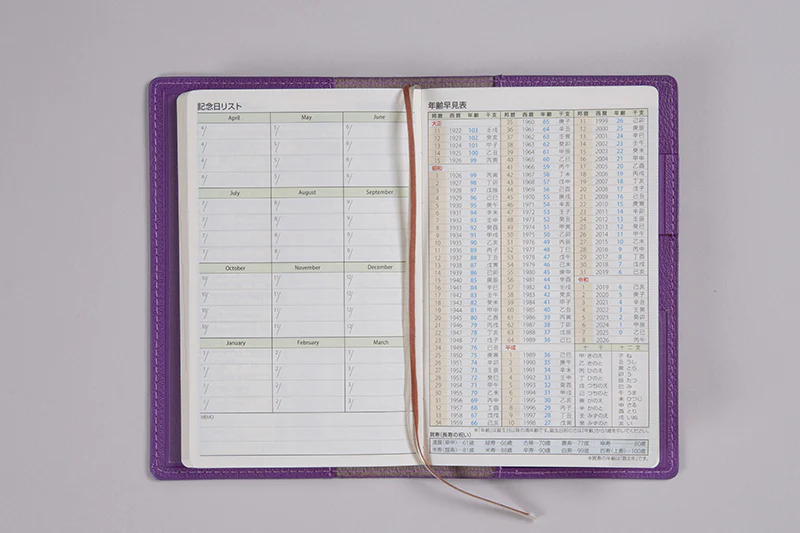 記念日リスト
April May June
4/ 5/ 6/
4/ 5/ 6/
4/ 5/ 6/
4/ 5/ 6/
July August September
7/ 8/ 9/
7/ 8/ 9/
7/ 8/ 9/
7/ 8/ 9/
October November December
10/ 11/ 12/
10/ 11/ 12/
10/ 11/ 12/
10/ 11/ 12/
January February March
1/ 2/ 3/
1/ 2/ 3/
1/ 2/ 3/
1/ 2/ 3/
MEMO
年齢早見表
邦暦 西暦 年齢 干支
大正
11 1922 103 壬戌
12 1923 102 癸亥
13 1924 101 甲子
14 1925 100 乙丑
15 1926 99 丙寅
昭和
1926 99 丙寅
2 1927 98 丁卯
3 1928 97 戊辰
4 1929 96 己巳
5 1930 95 庚午
6 1931 94 辛未
7 1932 93 壬申
8 1933 92 癸酉
9 1934 91 甲戌
10 1935 90 乙亥
11 1936 89 丙子
12 1937 88 丁丑
13 1938 87 戊寅
14 1939 86 己卯
15 1940 85 庚辰
16 1941 84 辛巳
17 1942 83 壬午
18 1943 82 癸未
19 1944 81 甲申
20 1945 80 乙酉
21 1946 79 丙戌
22 1947 78 丁亥
23 1948 77 戊子
24 1949 76 己丑
25 1950 75 庚寅
26 1951 74 辛卯
27 1952 73 壬辰
28 1953 72 癸巳
29 1954 71 甲午
30 1955 70 乙未
31 1956 69 丙申
32 1957 68 丁酉
33 1958 67 戊戌
34 1959 66 己亥
邦暦 西暦 年齢 干支
35 1960 65 庚子
36 1961 64 辛丑
37 1962 63 壬寅
38 1963 62 癸卯
39 1964 61 甲辰
40 1965 60 乙巳
41 1966 59 丙午
42 1967 58 丁未
43 1968 57 戊申
44 1969 56 己酉
45 1970 55 庚戌
46 1971 54 辛亥
47 1972 53 壬子
48 1973 52 癸丑
49 1974 51 甲寅
50 1975 50 乙卯
51 1976 49 丙辰
52 1977 48 丁巳
53 1978 47 戊午
54 1979 46 己未
55 1980 45 庚申
56 1981 44 辛酉
57 1982 43 壬戌
58 1983 42 癸亥
59 1984 41 甲子
60 1985 40 乙丑
61 1986 39 丙寅
62 1987 38 丁卯
63 1988 37 戊辰
64 1989 36 己巳
平成
1 1989 36 己巳
2 1990 35 庚午
3 1991 34 辛未
4 1992 33 壬申
5 1993 32 癸酉
6 1994 31 甲戌
7 1995 30 乙亥
8 1996 29 丙子
9 1997 28 丁丑
10 1998 27 戊寅
邦暦 西暦 年齢 干支
11 1999 26 己卯
12 2000 25 庚辰
13 2001 24 辛巳
14 2002 23 壬午
15 2003 22 癸未
16 2004 21 甲申
17 2005 20 乙酉
18 2006 19 丙戌
19 2007 18 丁亥
20 2008 17 戊子
21 2009 16 己丑
22 2010 15 庚寅
23 2011 14 辛卯
24 2012 13 壬辰
25 2013 12 癸巳
26 2014 11 甲午
27 2015 10 乙未
28 2016 9 丙申
29 2017 8 丁酉
30 2018 7 戊戌
31 2019 6 己亥
令和
1 2019 6 己亥
2 2020 5 庚子
3 2021 4 辛丑
4 2022 3 壬寅
5 2023 2 癸卯
6 2024 1 甲辰
7 2025 0 乙巳
8 2026 丙午
十干 十二支
甲 きのえ 子 ね
乙 きのと 丑 うし
丙 ひのえ 寅 とら
丁 ひのと 卯 う
戊 つちのえ 辰 たつ
己 つちのと 巳 み
庚 かのえ 午 うま
辛 かのと 未 ひつじ
壬 みずのえ 申 さる
癸 みずのと 酉 とり
戌 いぬ
亥 い
※「年齢」は誕生日以降の満年齢です。誕生日前の方は「年齢」から1歳を引いてください。
賀寿(長寿の祝い)
還暦(華甲)-61歳 緑寿-66歳 古稀-70歳 喜寿-77歳 傘寿-80歳
半寿(盤寿)-81歳 米寿-88歳 卒寿-90歳 白寿-99歳 百寿(上寿)-100歳
※賀寿の年齢は「数え年」です。